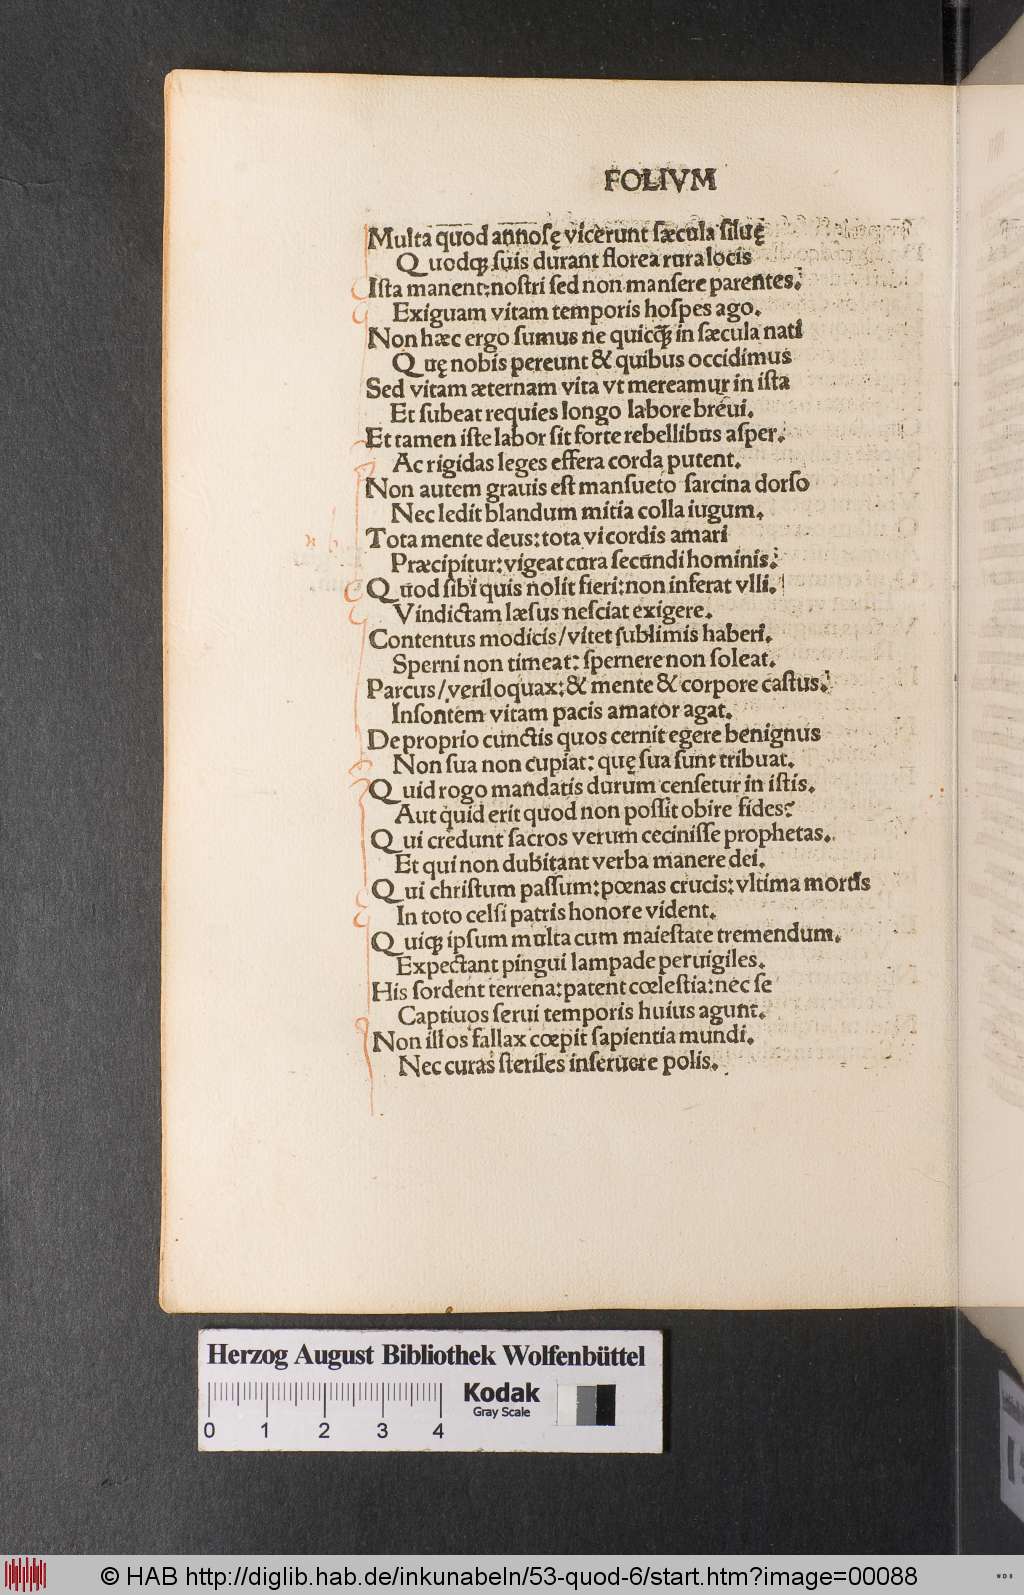 FOLIVM
Multa quod annosę vicerunt sæcula siluę
Quodqꝫ suis durant florea rura locis
Ista manent: nostri sed non mansere parentes.
Exiguam vitam temporis hospes ago.
Non hæc ergo sumus ne quicqꝫ in sæcula nati
Quę nobis pereunt & quibus occidimus
Sed vitam æternam vita vt mereamur in ista
Et subeat requies longo labore breui.
Et tamen iste labor sit forte rebellibus asper.
Ac rigidas leges effera corda putent.
Non autem grauis est mansueto sarcina dorso
Nec ledit blandum mitia colla iugum.
Tota mente deus: tota vi cordis amari
Præcipitur: vigeat cura secundi hominis.
Quod sibi quis nolit fieri: non inferat vlli.
Vindictam læsus nesciat exigere.
Contentus modicis/ vitet sublimis haberi.
Sperni non timeat: spernere non soleat.
Parcus/ veriloquax: & mente & corpore castus.
Insontem vitam pacis amator agat.
De proprio cunctis quos cernit egere benignus
Non sua non cupiat: quę sua sunt tribuat.
Quid rogo mandatis durum censetur in istis.
Aut quid erit quod non possit obire fides?
Qui credunt sacros verum cecinisse prophetas.
Et qui non dubitant verba manere dei.
Qui christum passum: pœnas crucis: vltima mortis
In toto celsi patris honore vident.
Quiqꝫ ipsum multa cum maiestate tremendum.
Expectant pingui lampade peruigiles.
His sordent terrena: patent cœlestia: nec se
Captiuos serui temporis huius agunt.
Non illos fallax cœpit sapientia mundi.
Nec curas steriles inseruere polis.
Herzog August Bibliothek Wolfenbüttel
Kodak
Gray Scale
0 1 2 3 4
© HAB http://diglib.hab.de/inkunabeln/53-quod-6/start.htm?image=00088